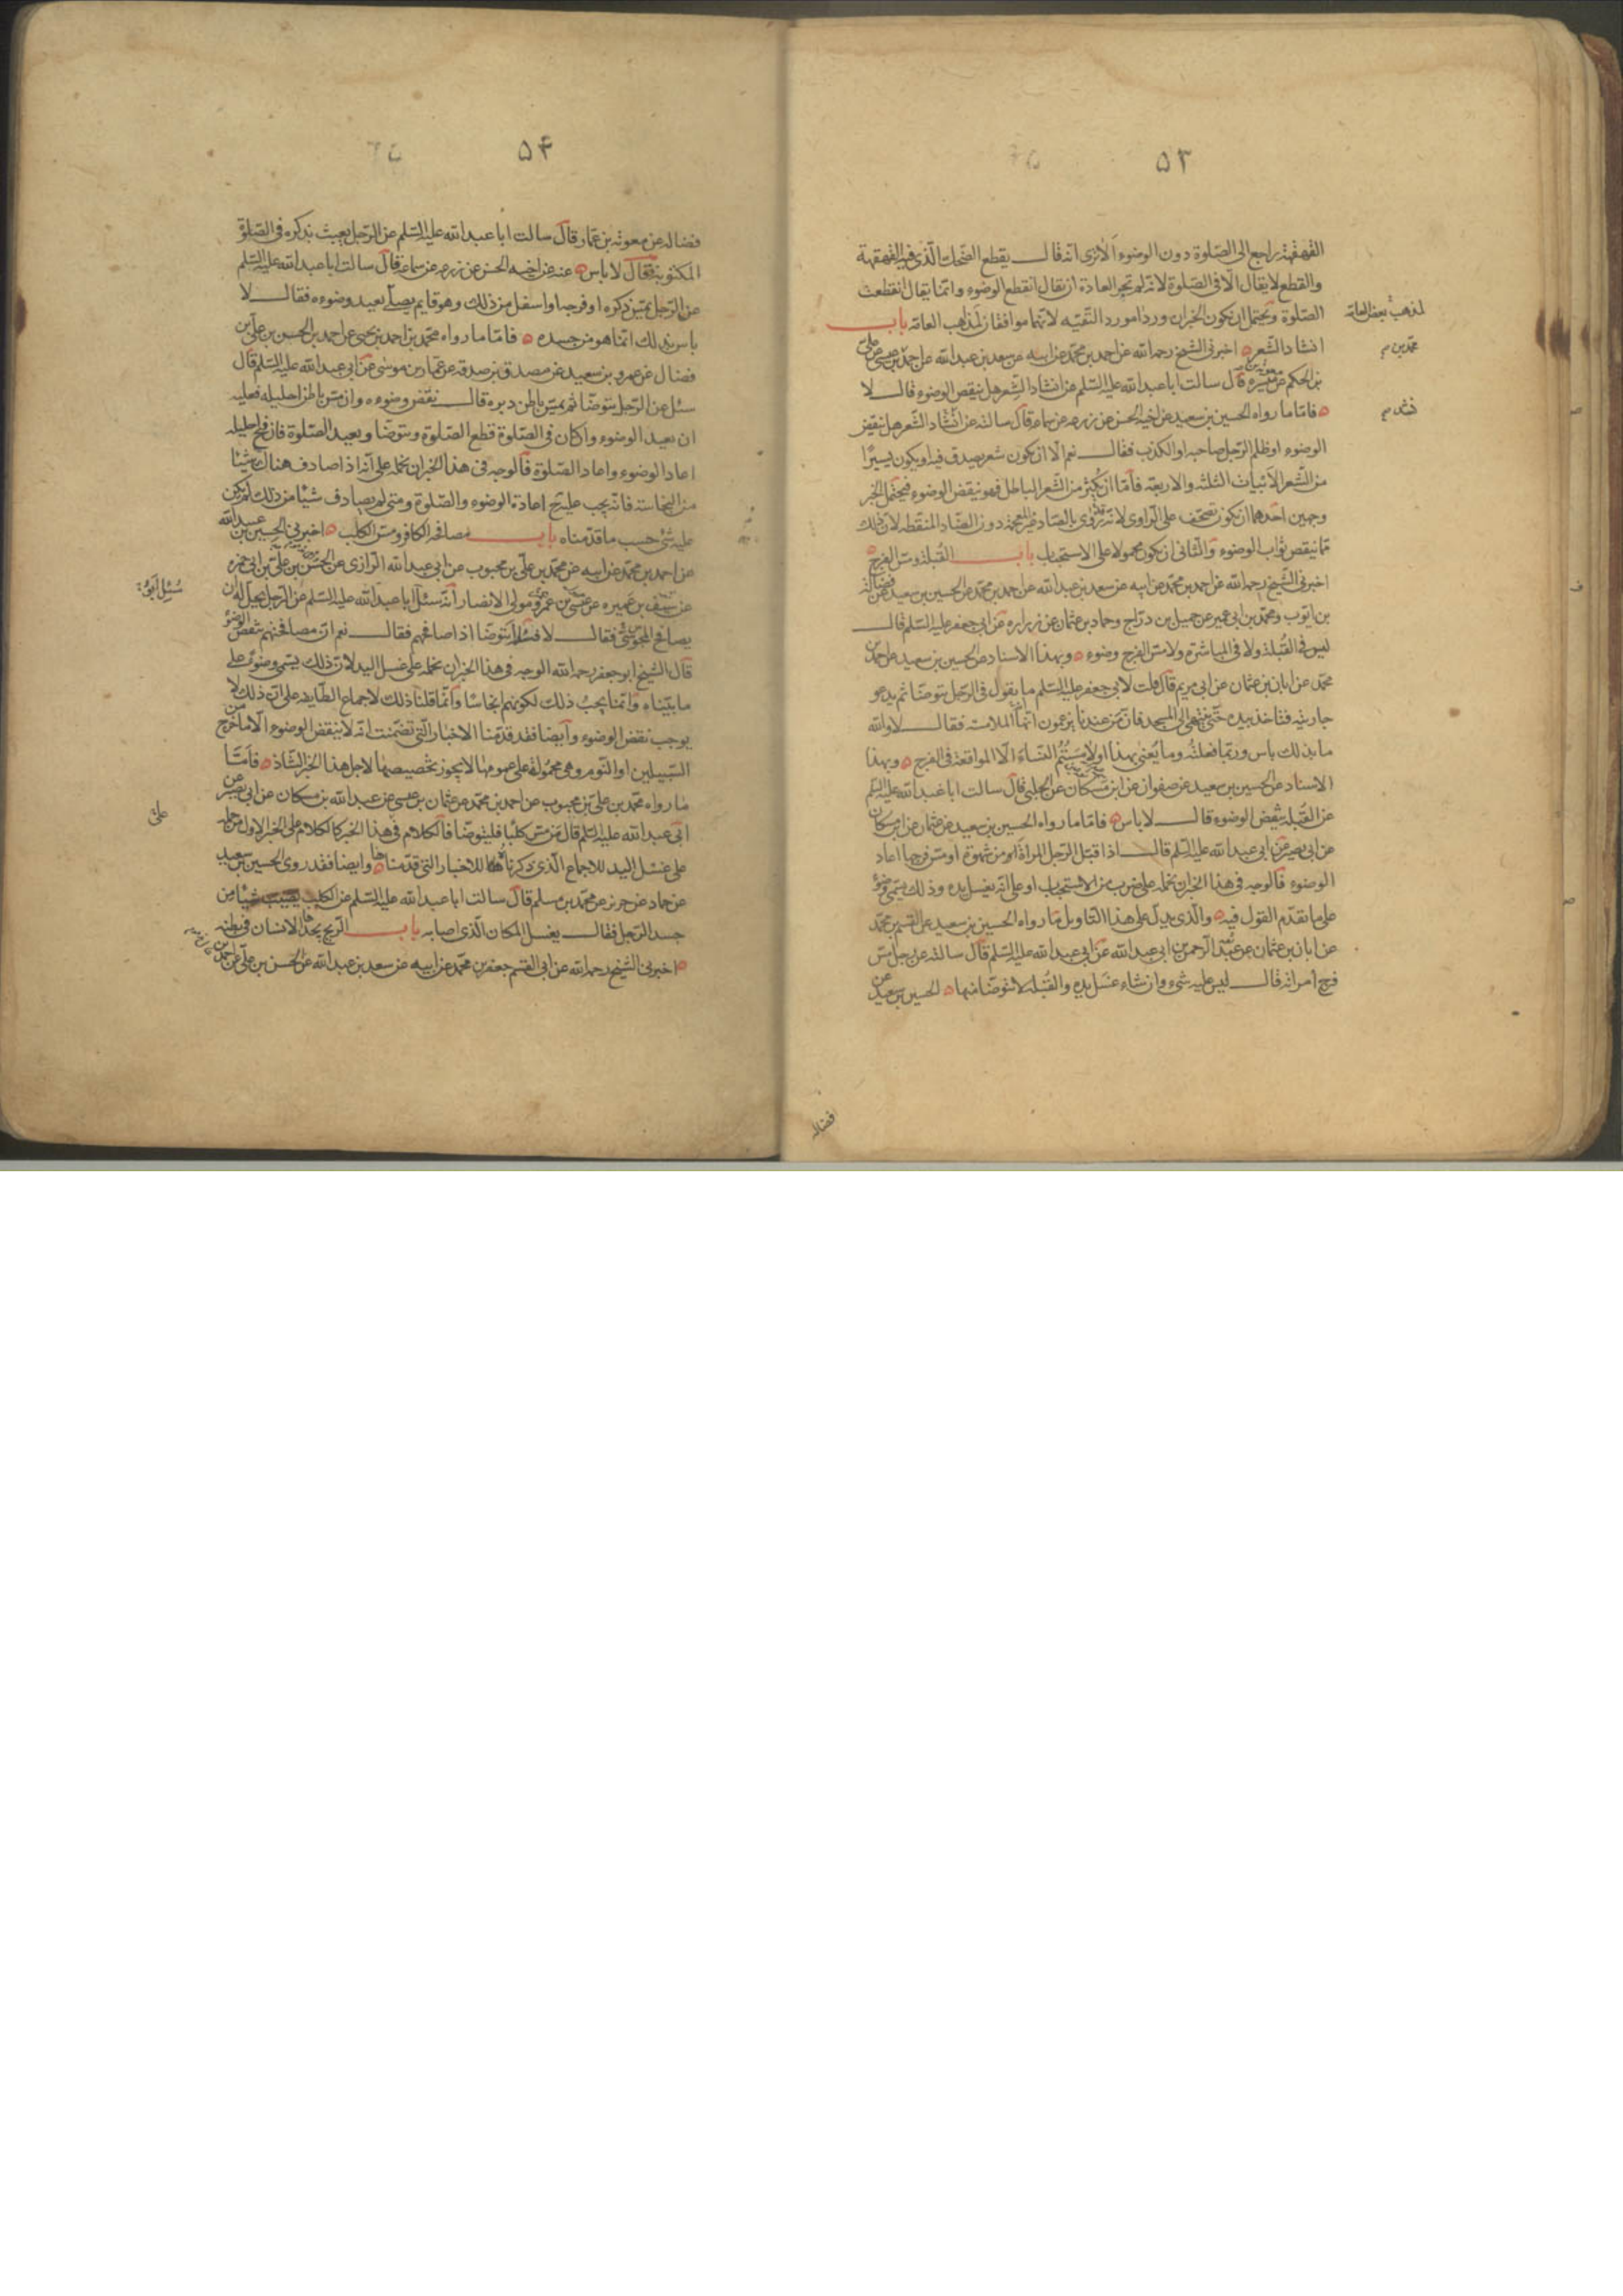 ۵۳
القهقهة راجع الى الصّلوة دون الوضوء الا ترى انه قال يقطع الضحك الّذى فيه القهقهة
والقطع لا يقال الّا فى الصّلوة لانّه لم تجر العادة ان يقال انقطع الوضوء وانّما يقال انقطعت
الصّلوة ويحتمل ان يكون الخبران وردا مورد التّقيّه لانّهما موافقان لمذاهب العامّه باب
لمذهب بعض العامّة
انشاد الشّعر اخبرنى الشيخ رحمه الله عن احمد بن محمّد عن ابيه عن سعد بن عبد الله عن احمد بن عيسى عن على
محمّد بن
بن الحكم عن ميسره قال سالت ابا عبد الله عليه السّلم عن انشاد الشّعر هل ينقض الوضوء قال لا
فامّا ما رواه الحسين بن سعيد عن اخيه الحسن عن زرعه عن سماعه قال سالته عن انشاد الشّعر هل ينقض
الوضوء او ظلم الرّجل صاحبه او الكذب فقال نعم الّا ان يكون شعر يصدق فيه او يكون يسيرًا
من الشّعر الابيات الثلثه والاربعه فامّا ان يكثر من الشّعر الباطل فهو ينقض الوضوء فيحتمل الخبر
وجهين احدهما ان يكون تصحّف على الرّاوى لانّه روى بالصّاد غير المعجمة دون الضّاد المنقطه لانّ ذلك
ممّا ينقص ثواب الوضوء والثانى ان يكون محمولا على الاستحباب باب القبلة ومسّ الفرج
اخبرنى الشّيخ رحمه الله عن احمد بن محمّد عن ابيه عن سعد بن عبد الله عن احمد بن محمّد عن الحسين بن سعيد عن فضالة
بن ايّوب ومحمّد بن ابى عمير عن جميل بن درّاج وحماد بن عثمان عن زراره عن ابى جعفر عليه السّلم قال
ليس فى القُبلة ولا فى المباشرة ولا مسّ الفرج وضوء وبهذا الاسناد عن الحسين بن سعيد عن احمد بن
محمّد عن ابان بن عثمان عن ابى مريم قال قلت لابى جعفر عليه السّلم ما يقول فى الرّجل يتوضّا ثم يدعو
جاريته فتاخذ بيده حتّى ينتهى الى المسجد فان من عندنا يزعمون انّها الملامسة فقال لا والله
ما بذلك باس وربّما فعلته وما يُعنى بهذا اولامستُمُ النساء الّا المواقعة فى الفرج وبهذا
الاسناد عن الحسين بن سعيد عن صفوان عن ابن مسكان عن الحلبى قال سالت ابا عبد الله عليه السّلم
عن القُبله ينقض الوضوء قال لا باس فامّا ما رواه الحسين بن سعيد عن عثمان عن ابن مسكان
عن ابى بصير عن ابى عبد الله عليه السّلم قال اذا قبّل الرّجل المراة او من شهوة او مسّ فرجها اعاد
الوضوء فالوجه فى هذا الخبر ان نحمله على ضرب من الاستحباب او على انّه يغسل يده وذلك يسمّى وضوءً
على ما تقدّم القول فيه والّذى يدلّ على هذا التاويل ما رواه الحسين بن سعيد عن القسم بن محمّد
عن ابان بن عثمان عن عبد الرّحمن بن ابى عبد الله عن ابى عبد الله عليه السّلم قال سالته عن رجل مسّ
فرج امراته قال ليس عليه شىء وان شاء غسل يده والقُبله لا يتوضّا منها الحسين بن سعيد عن
فضاله
۵۴
فضاله عن معويه بن عمّار قال سالت ابا عبد الله عليه السّلم عن الرّجل يعبث بذكره فى الصّلوة
المكتوبة فقال لا باس عنه عن اخيه الحسن عن زرعه عن سماعه قال سالت ابا عبد الله عليه السّلم
عن الرّجل يمسّ ذكره او فرجه او اسفل من ذلك وهو قايم يصلّى يعيد وضوءه فقال لا
باس بذلك انّما هو من جسده فامّا ما رواه محمّد بن احمد بن يحيى عن احمد بن الحسن بن على بن
فضال عن عمرو بن سعيد عن مصدق بن صدقه عن عمّار بن موسى عن ابى عبد الله عليه السّلم قال
سئل عن الرّجل يتوضّا ثم يمسّ باطن دبره قال نقض وضوءه وان مسّ باطن احليله فعليه
ان يعيد الوضوء وان كان فى الصّلوة قطع الصّلوة ويتوضّا ويعيد الصّلوة فان فتح احليله
اعاد الوضوء واعاد الصّلوة فالوجه فى هذا الخبر ان نحمله على انّه اذا صادف هناك شيئا
من النجاسة فانّه يجب عليه اعادة الوضوء والصّلوة ومتى لم يصادف شيئا من ذلك لم يكن
عليه شئ حسب ما قدّمناه باب مصافحة الكافر ومسّ الكلب اخبرنى الحسين بن عبيد الله
عن احمد بن محمّد عن ابيه عن محمّد بن علىّ بن محبوب عن ابى عبد الله الرّازى عن الحسن بن علىّ بن ابى حمزه
عن سيف بن عميره عن عيسى بن عمرو مولى الانصار انّه سئل ابا عبد الله عليه السّلم عن الرّجل يحلّ له ان
يصافح المجوسىّ فقال لا فسئله أيتوضّا اذا صافحهم فقال نعم انّ مصافحتهم ينقض الوضوء
قال الشّيخ ابو جعفر رحمه الله الوجه فى هذا الخبر ان نحمله على غسل اليد لانّ ذلك يسمّى وضوءً على
ما بيّناه وانّما يجب ذلك لكونهم انجاسًا وانّما قلنا ذلك لاجماع الطّايفه على انّ ذلك لا
يوجب نقض الوضوء وايضا فقد قدّمنا الاخبار الّتى تضمّنت انّه لا ينقض الوضوء الّا ما خرج من
السّبيلين او النّوم وهى محمولة على عمومها لا يجوز تخصيصها لاجل هذا الخبر الشاذ فامّا
ما رواه محمّد بن علىّ بن محبوب عن احمد بن محمّد عن عثمان بن عيسى عن عبد الله بن مسكان عن ابى بصير عن
ابى عبد الله عليه السّلم قال من مسّ كلبًا فليتوضّا فالكلام فى هذا الخبر كالكلام على الخبر الاول من حمله
على
على غسل اليد للاجماع الّذى ذكرناه للاخبار التى قدّمناها وايضا فقد روى الحسين بن سعيد
عن حماد عن حريز عن محمّد بن مسلم قال سالت ابا عبد الله عليه السّلم عن الكلب يصيب شيئا من
جسد الرّجل فقال يغسل المكان الّذى اصابه باب الرّيح يجدها الانسان فى بطنه
اخبرنى الشيخ رحمه الله عن ابى القسم جعفر بن محمّد عن ابيه عن سعد بن عبد الله عن الحسن بن علىّ عن احمد بن